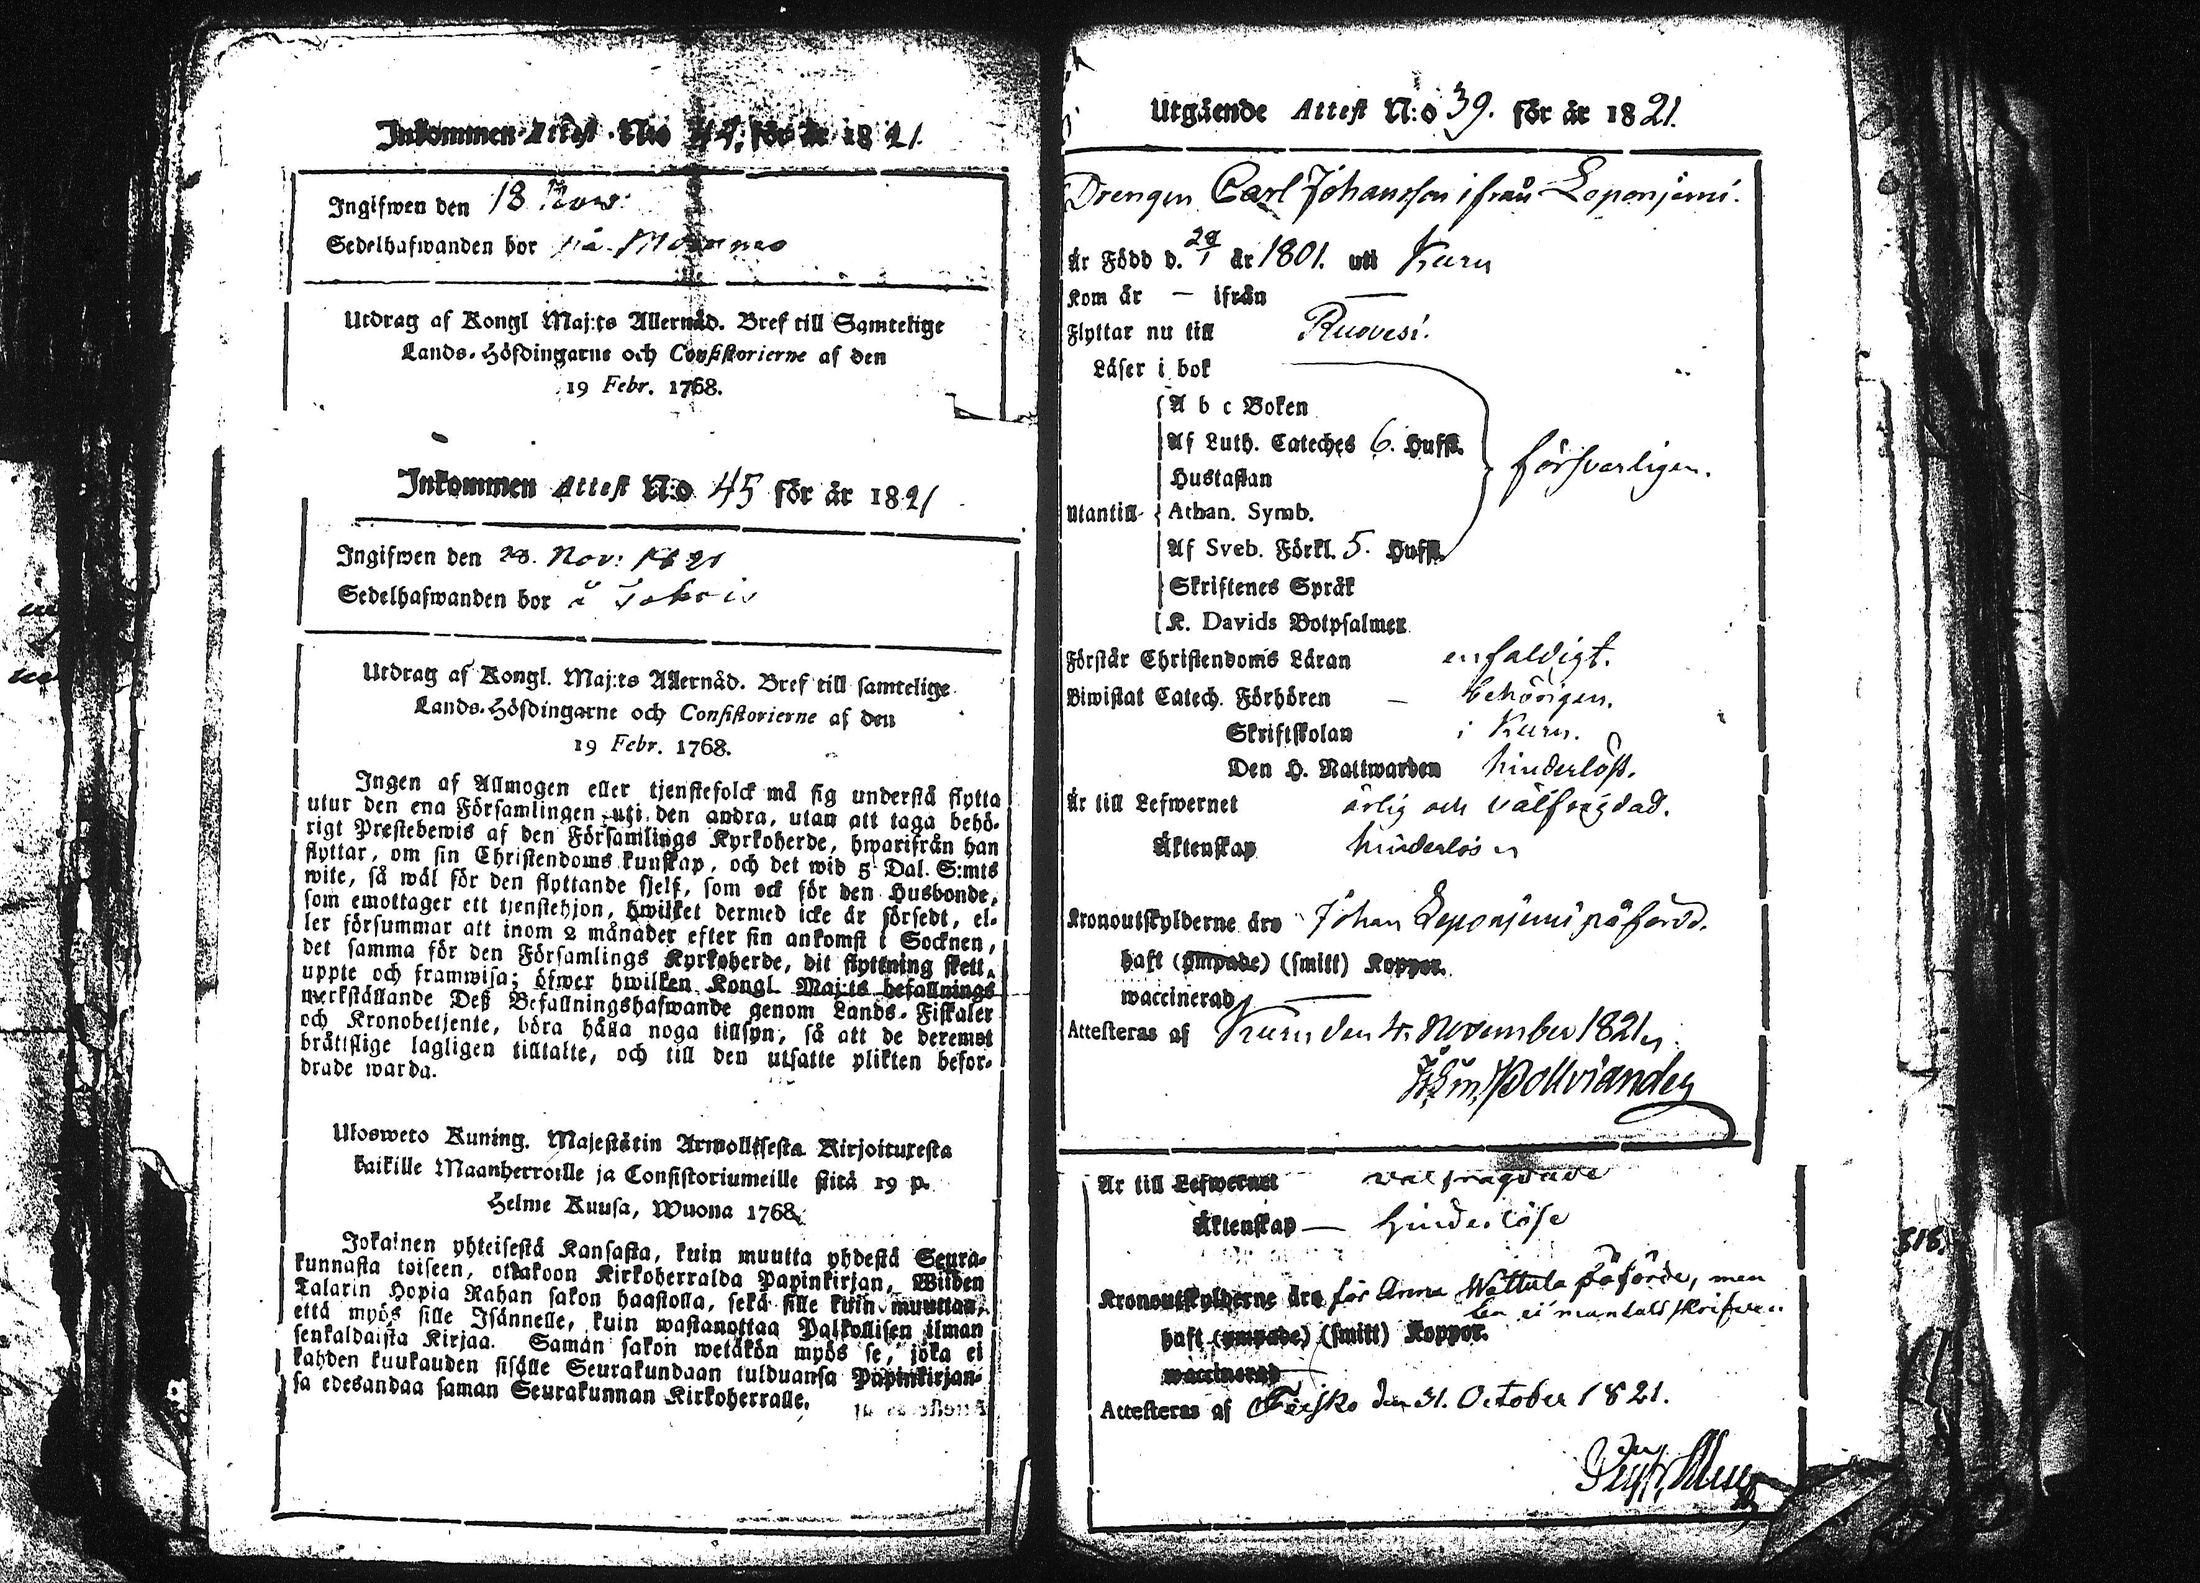 Inkommen Attest N:o 44. för år 1821.
Ingifwen den 18 Nov:
Sedelhafwanden bor på
Utdrag af Kongl Maj:ts Allernåd. Bref till Samtelige
Lands-Höfdingarne och Consistorierne af den
19 Febr. 1768.
Inkommen Attest N:o 45 för år 1821
Ingifwen den 28. Nov: 1821
Sedelhafwanden bor å
Utdrag af Kongl. Maj:ts Allernåd. Bref till samtelige
Lands-Höfdingarne och Consistorierne af den
19 Febr. 1768.
Ingen af Allmogen eller tjenstefolck må sig understå flytta
utur den ena Församlingen uti den andra, utan att taga behö-
rigt Prestebewis af den Församlings Kyrkoherde, hwarifrån han
flyttar, om sin Christendoms kunskap, och det wid 5 Dal. S:mts
wite, så wäl för den flyttande sjelf, som ock för den Husbonde,
som emottager ett tjenstehjon, hwilket dermed icke är försedt, el-
ler försummar att inom 2 månader efter sin ankomst i Socknen,
det samma för den Församlings Kyrkoherde, dit flyttning skett,
uppte och framwisa; öfwer hwilken Kongl. Maj:ts befallnings
werkställande Deß Befallningshafwande genom Lands-Fiskaler
och Kronobetjente, böra hålla noga tillsyn, så att de deremot
bråttslige lagligen tilltalte, och till den utsatte plikten befor-
drade warda.
Ulosweto Kuning. Majestätin Armollisesta Kirjoituxesta
kaikille Maanherroille ja Consistoriumeille siitä 19 p.
Helme Kuusa, Wuona 1768.
Jokainen yhteisestä Kansasta, kuin muutta yhdestä Seura-
kunnasta toiseen, ottakoon Kirkoherralda Papinkirjan, Wiiden
Talarin Hopia Rahan sakon haastolla, sekä sille kuin muuttaa,
että myös sille Isännelle, kuin wastanottaa Palkollisen ilman
senkaldaista Kirjaa. Saman sakon wetäkön myös se, joka ei
kahden kuukauden sisälle Seurakundaan tulduansa Papinkirjan-
sa edesandaa saman Seurakunnan Kirkoherralle.
Utgående Attest N:o 39. för år 1821.
Drengen Carl Johansson ifrån Leponjemi.
Är Född d. 28/1 år 1801. uti Kuru
Kom år — ifrån —
Flyttar nu till Ruovesi.
Läser i bok
A b c Boken
Af Luth. Cateches 6. Hufst. försvarligen.
Hustaflan
Utantill Athan. Symb.
Af Sveb. Förkl. 5. Hufst.
Skriftenes Språk
K. Davids Botpsalmer
Förstår Christendoms Läran enfaldigt.
Biwistat Catech. Förhören — behörigen.
Skriftskolan i Kuru.
Den H. Nattwarden hinderlöst.
Är till Lefwernet ärlig och välfrägdad.
Äktenskap hinderlös
Kronoutskylderne äro Johan Leponjemi påförd.
haft (ympade) (smitt) Koppor.
waccinerad —
Attesteras af Kuru den 4. November 1821
Är till Lefwernet välfrägdade
Äktenskap — hinderlöse
Kronoutskylderne äro för Anna Wattula påförde, men
ei mantalsskrifven
haft (ympade) (smitt) Koppor.
waccinerad —
Attesteras af Teisko den 31. October 1821.
818.